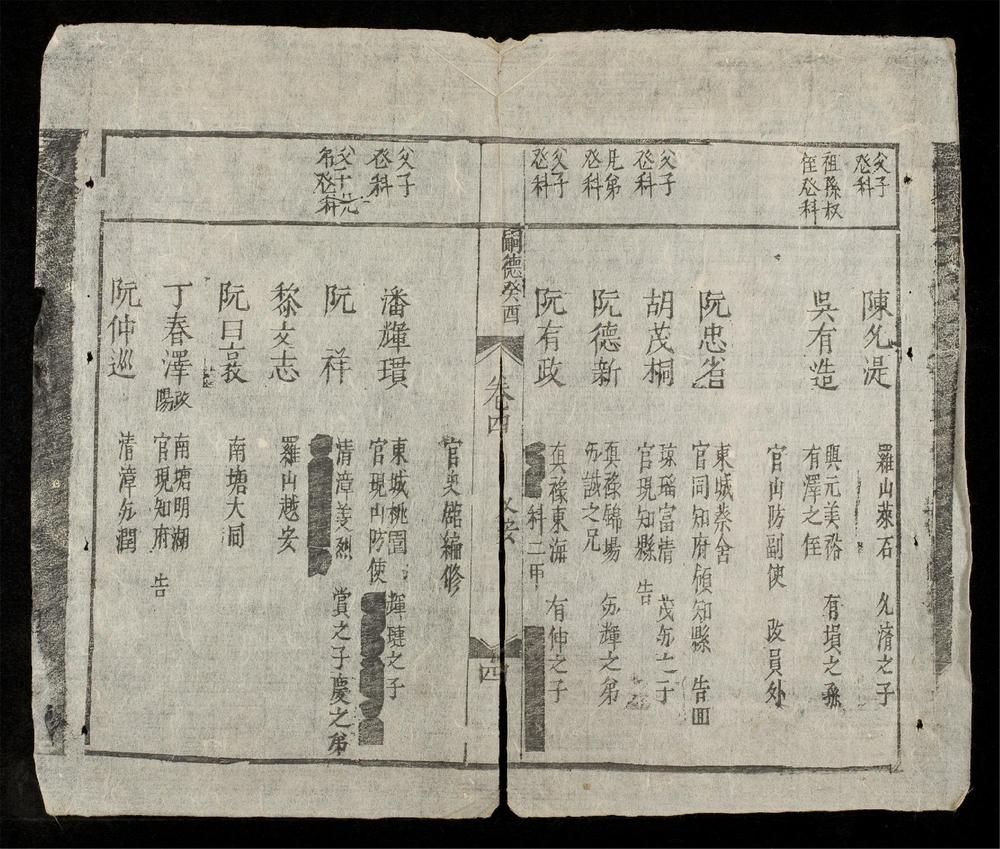 父子
登科
祖孫叔
侄登科
父子
登科
兄弟
登科
父子
登科
陳允湜
羅山萊石 允濟之子
吳有造
興元美裕 有塤之孫
有澤之侄
官山防副使 改員外
阮忠省
東城葵舍
官同知府領知縣 告回
胡茂桐
瓊瑤富清 茂
之子
官現知縣 告
阮德新
真祿錦場 輝之弟
誠之兄
阮有政
真祿東海 有仲之子
科二甲
嗣德癸酉
卷四
乂安
四
父子
登科
父子兄
弟登科
官史館編修
潘輝瓌
東城桃園 輝璉之子
官現山防使
阮 祥
清漳姜烈 賞之子慶之弟
黎文志
羅山越安
阮曰
南塘大同
丁春澤 改陽
南塘明湖
官現知府 告
阮仲巡
清漳 潤